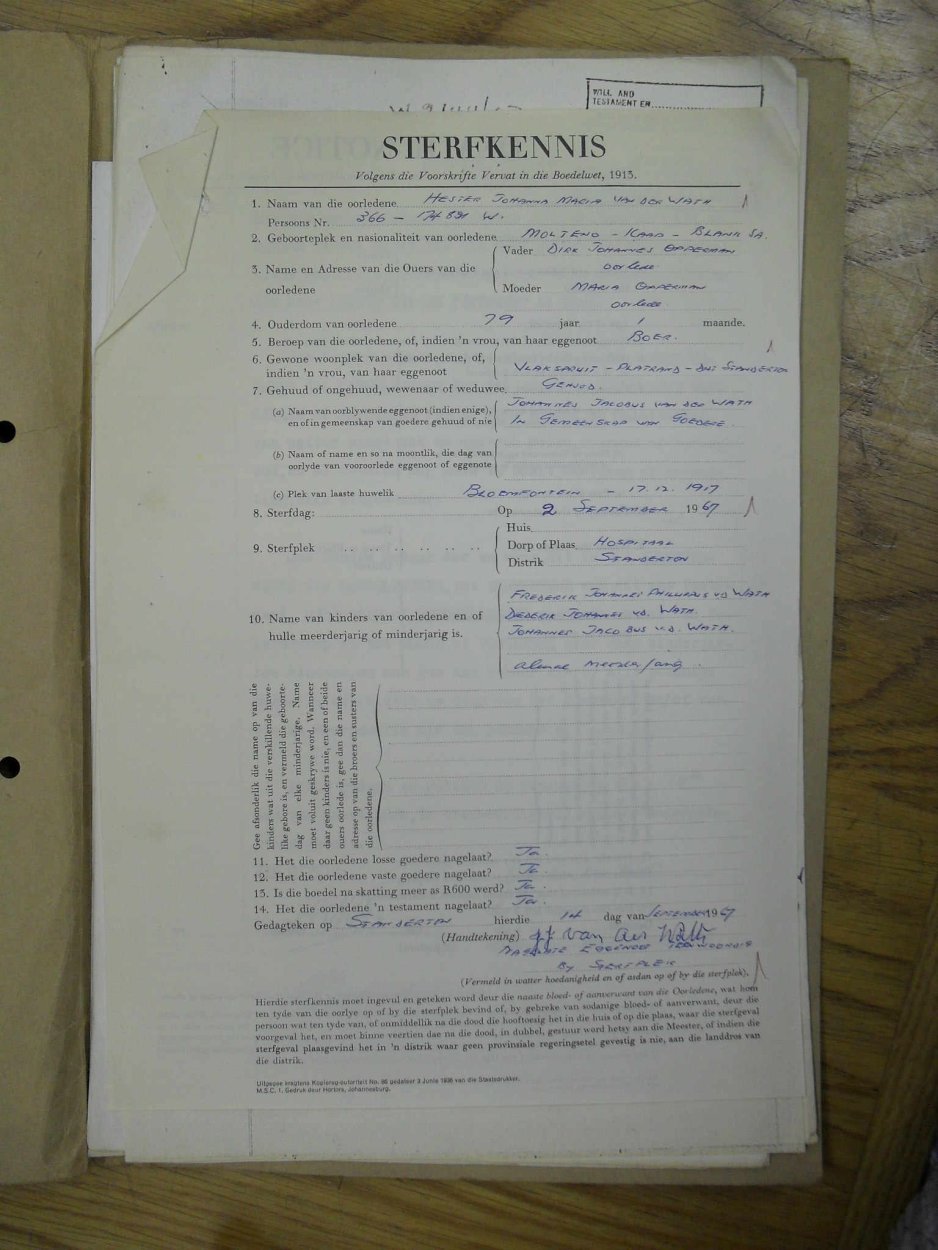 WILL AND
TESTAMENT EN
STERFKENNIS
Volgens die Voorskrifte Vervat in die Boedelwet, 1913.
1. Naam van die oorledene HESTER JOHANNA MARIA VAN DER WATH
Persoons Nr. 366 – 174 891 W.
2. Geboorteplek en nasionaliteit van oorledene MOLTENO - KAAP - BLANK SA.
3. Name en Adresse van die Ouers van die oorledene
Vader DIRK JOHANNES OPPERMAN
oorlede
Moeder MARIA OPPERMAN
oorlede.
4. Ouderdom van oorledene 79 jaar 1 maande.
5. Beroep van die oorledene, of, indien 'n vrou, van haar eggenoot BOER.
6. Gewone woonplek van die oorledene, of,
indien 'n vrou, van haar eggenoot
VLAKSPRUIT - PLATRAND - DIST STANDERTON
7. Gehuud of ongehuud, wewenaar of weduwee GEHUUD.
(a) Naam van oorblywende eggenoot (indien enige),
en of in gemeenskap van goedere gehuud of nie
JOHANNES JACOBUS VAN DER WATH
IN GEMEENSKAP VAN GOEDERE
(b) Naam of name en so na moontlik, die dag van
oorlyde van vooroorlede eggenoot of eggenote
(c) Plek van laaste huwelik BLOEMFONTEIN - 17.12.1917
8. Sterfdag: Op 2 SEPTEMBER 1967
9. Sterfplek
Huis
Dorp of Plaas HOSPITAAL
Distrik STANDERTON
10. Name van kinders van oorledene en of
hulle meerderjarig of minderjarig is.
FREDERIK JOHANNES PHILLIPUS V.D WATH
DIEDERIK JOHANNES V.D. WATH.
JOHANNES JACOBUS V.D. WATH.
almal meerderjarig.
Gee afsonderlik die name op van die
kinders wat uit die verskillende huwe-
like gebore is, en vermeld die geboorte-
dag van elke minderjarige. Name
moet voluit geskrywe word. Wanneer
daar geen kinders is nie, en een of beide
ouers oorlede is, gee dan die name en
adresse op van die broers en susters van
die oorledene.
11. Het die oorledene losse goedere nagelaat? Ja.
12. Het die oorledene vaste goedere nagelaat? Ja.
13. Is die boedel na skatting meer as R600 werd? Ja.
14. Het die oorledene 'n testament nagelaat? Ja.
Gedagteken op STANDERTON hierdie 14 dag van SEPTEMBER 1967
(Handtekening) J.J. van der Wath
NAGELATE EGGENOOT TEENWOORDIG
BY STERFPLEK
(Vermeld in watter hoedanigheid en of asdan op of by die sterfplek),
Hierdie sterfkennis moet ingevul en geteken word deur die naaste bloed- of aanverwant van die Oorledene, wat hom
ten tyde van die oorlye op of by die sterfplek bevind of, by gebreke van sodanige bloed- of aanverwant, deur die
persoon wat ten tyde van, of onmiddellik na die dood die hooftoesig het in die huis of op die plaas, waar die sterfgeval
voorgeval het, en moet binne veertien dae na die dood, in dubbel, gestuur word hetsy aan die Meester, of indien die
sterfgeval plaasgevind het in 'n distrik waar geen provinsiale regeringsetel gevestig is nie, aan die landdros van
die distrik.
Uitgegee kragtens Kopiereg-outoriteit No. 86 gedateer 3 Junie 1936 van die Staatsdrukker.
M.S.C. 1. Gedruk deur Hortors, Johannesburg.